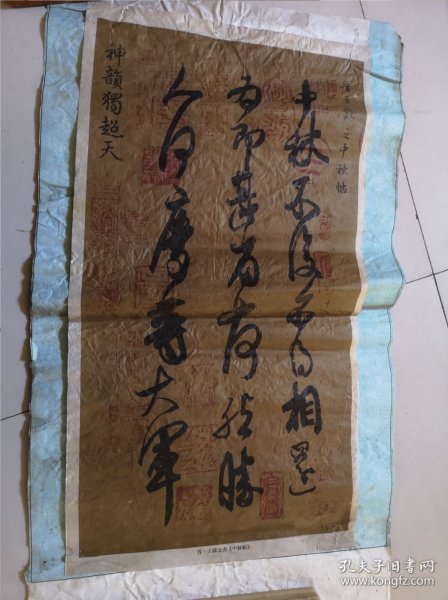 晋王献之中秋帖
中秋不復不得相還
為即甚省如何然勝
人何慶等大軍
神韻獨超天
晋·王献之书《中秋帖》
孔夫子旧书网
www.kongfz.com